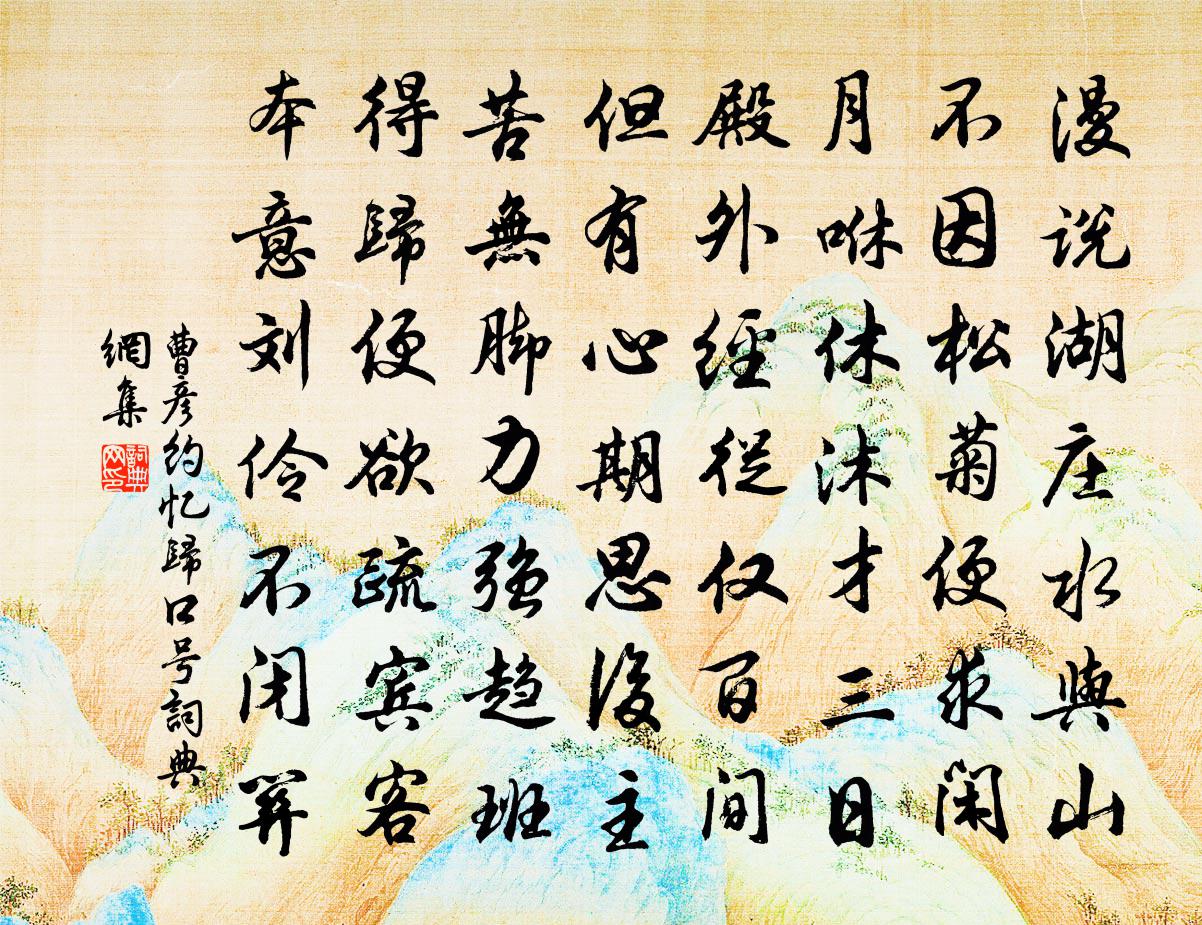 漫说湖庄水與山
不因松菊便求闲
月咻休沐才三日
殿外經從仅百间
但有心期思後主
苦無脚力强趋班
得歸便欲疏宾客
本意刘伶不闭关
曹彦约忆歸口号詞典
網集
詞典网印